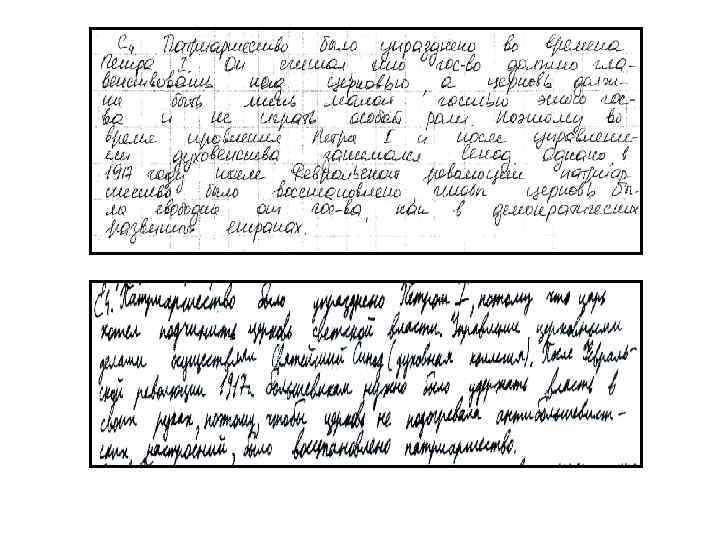 С4 Патриаршество было упразднено во времена
Петра I. Он считал что гос-во должно гла-
венствовать над церковью, а церковь долж-
на быть лишь малой частью этого гос-
ва и не играть особой роли. Поэтому во
время правления Петра I и после управление-
ем духовенства занимался Синод. Однако в
1917 году после Февральской революции патриар
шество было восстановлено чтобы церковь бы-
ла свободна от гос-ва, как в демократических
развитых странах.
С4. Патриаршество было упразднено Петром I, потому что царь
хотел подчинить церковь светской власти. Управление церковными
делами осуществлял Святейший Синод (духовная коллегия). После Февраль-
ской революции 1917г. большевикам нужно было удержать власть в
своих руках, поэтому, чтобы церковь не подогревала антибольшевист-
ских настроений, было восстановлено патриаршество.